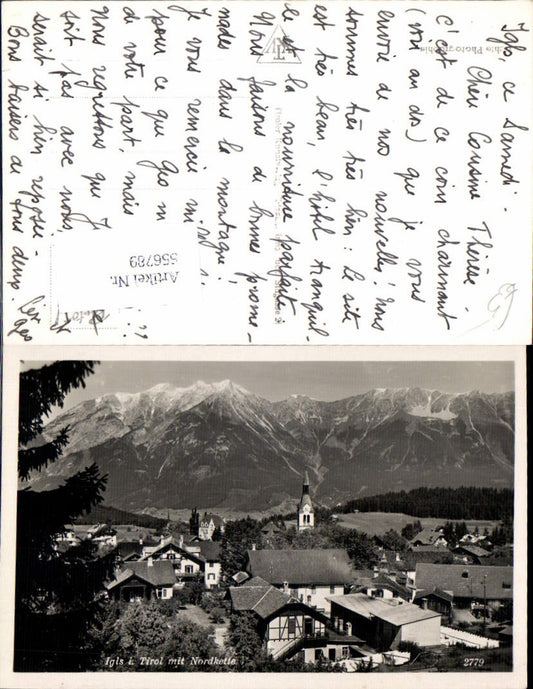 Igls, ce Samedi.
Chère Cousine Thérèse
C'est de ce coin charmant
(voir au dos) que je vous
envoie de nos nouvelles! Nous
sommes très très bien: le site
est très beau, l'hôtel tranquil-
le et la nourriture parfaite
Nous faisons de bonnes prome-
nades dans la montagne!
Je vous remercie
pour ce que Geo m
di votre part, mais
Nous regrettons que J
soit pas avec nous
serait si bien reposée
Bons baisers de tous deux
Geo
Echte Photographie
Artikel Nr.
556789
Igls i. Tirol mit Nordkette
2779